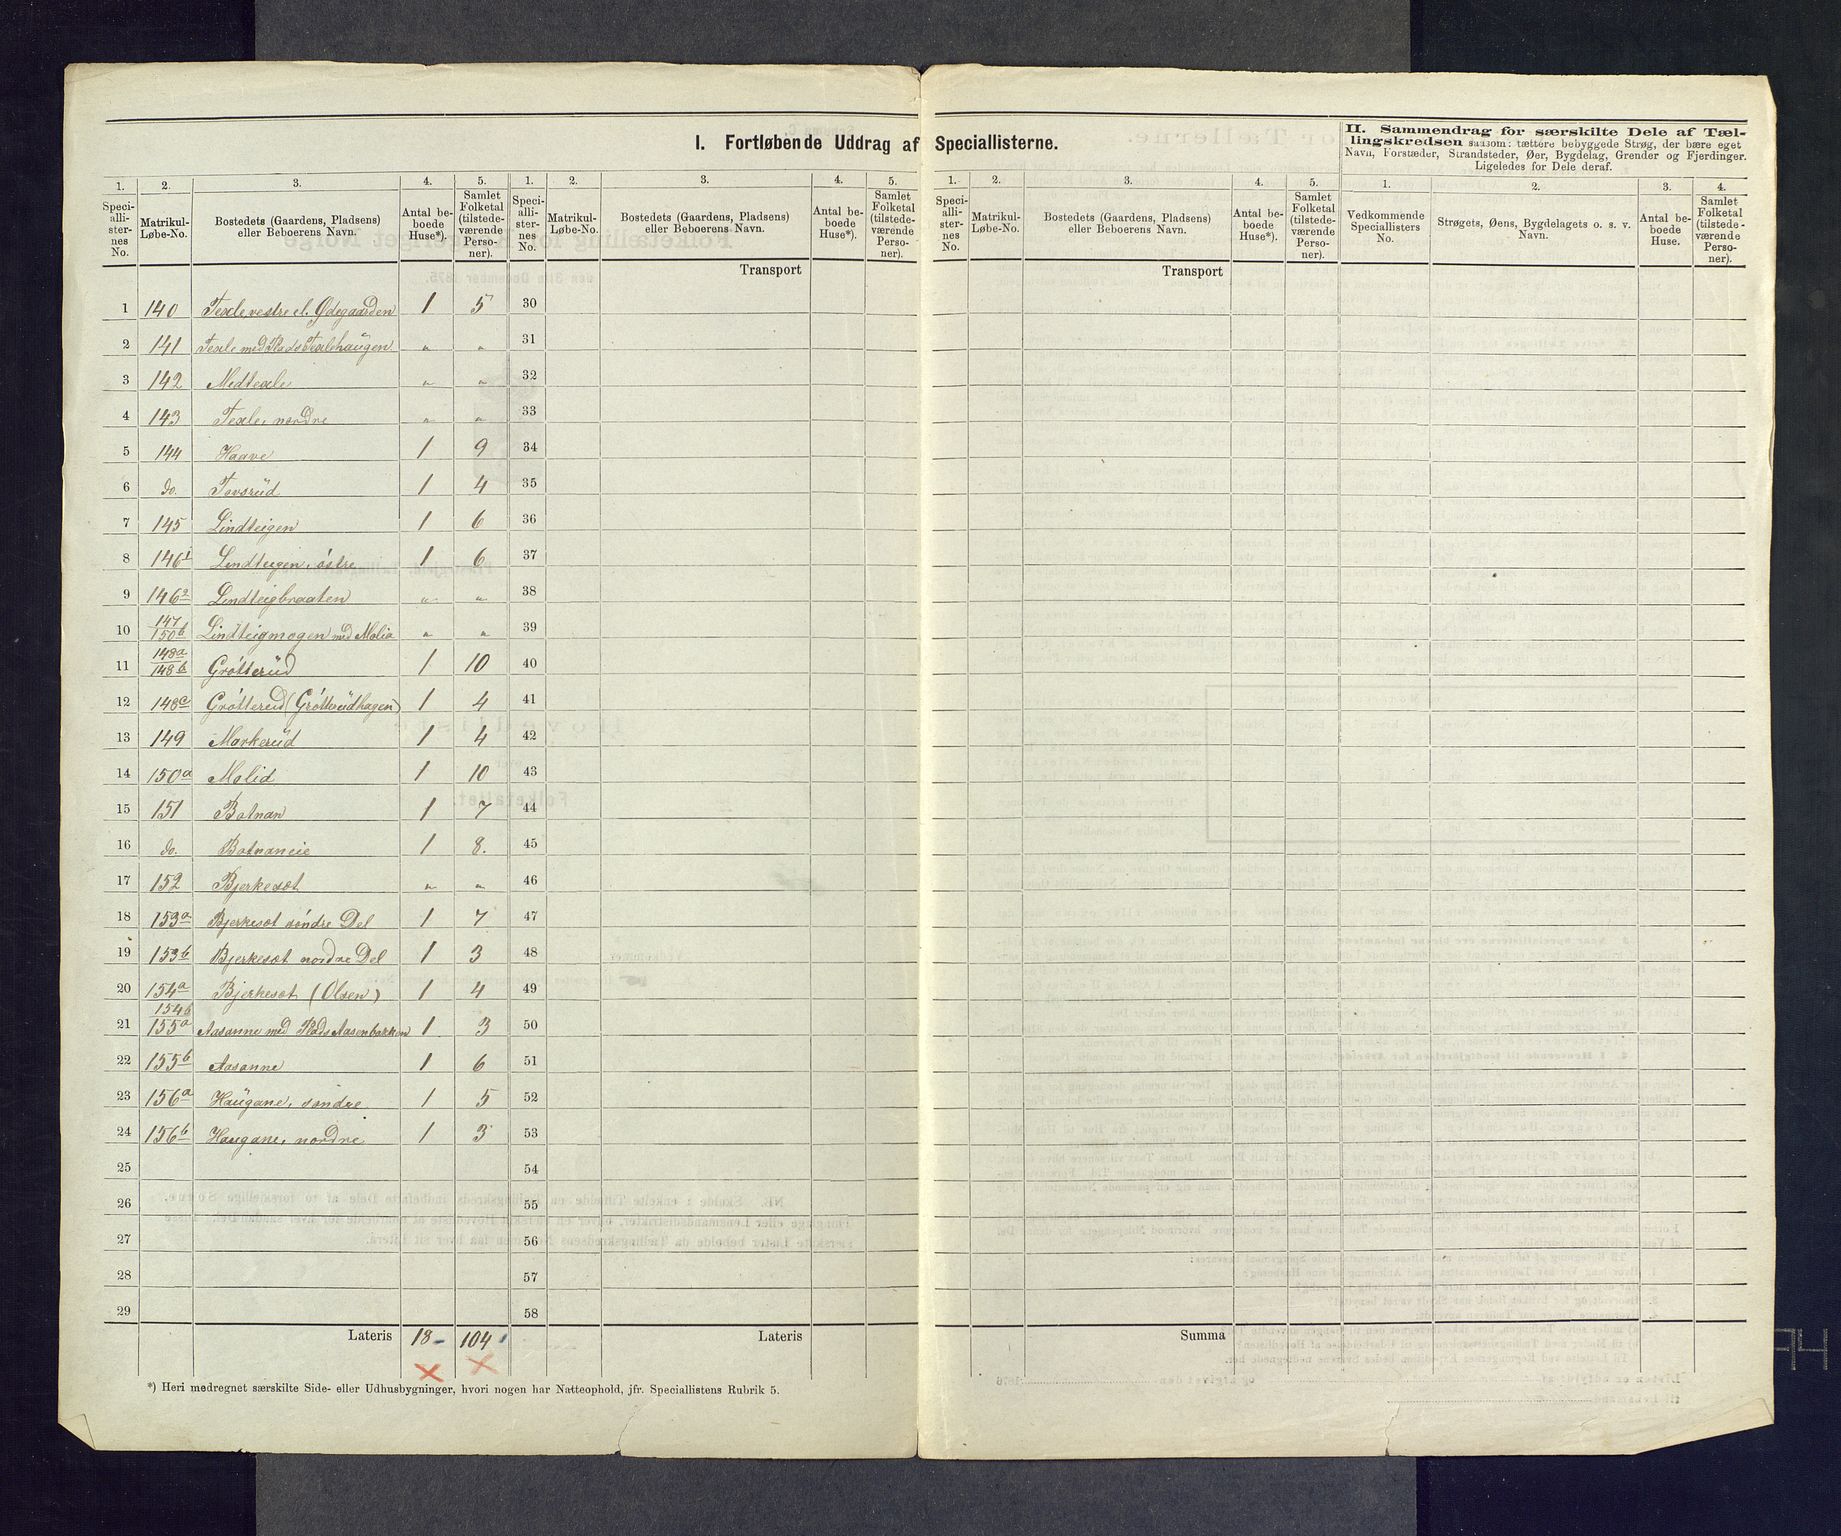 I. Fortløbende Uddrag af Speciallisterne.
II. Sammendrag for særskilte Dele af Tæl-
lingskredsen saasom: tættere bebyggede Strøg, der bære eget
Navn, Forstæder, Strandsteder, Øer, Bygdelag, Grender og Fjerdinger.
Ligeledes for Dele deraf.
1. 2. 3. 4. 5. 1. 2. 3. 4. 5. 1. 2. 3. 4. 5. 1. 2. 3. 4.
Speci-allister-nes No. Matrikul-Løbe-No. Bostedets (Gaardens, Pladsens) eller Beboerens Navn. Antal be-boede Huse*). Samlet Folketal (tilstede-værende Perso-ner).
Speci-allister-nes No. Matrikul-Løbe-No. Bostedets (Gaardens, Pladsens) eller Beboerens Navn. Antal be-boede Huse*). Samlet Folketal (tilstede-værende Perso-ner).
Speci-allister-nes No. Matrikul-Løbe-No. Bostedets (Gaardens, Pladsens) eller Beboerens Navn. Antal be-boede Huse*). Samlet Folketal (tilstede-værende Perso-ner).
Vedkommende Speciallisters No. Strøgets, Øens, Bygdelagets o. s. v. Navn. Antal be-boede Huse. Samlet Folketal (tilstede-værende Perso-ner).
Transport Transport
1 140 Texle vestre el. Ødegaarden 1 5 30
2 141 Texle med Plads Texlehaugen " " 31
3 142 Medtexle " " 32
4 143 Texle, nordre " " 33
5 144 Haave 1 9 34
6 do. Tovsrud 1 4 35
7 145 Lindteigen 1 6 36
8 146 1 Lindteigen, østre 1 6 37
9 146 2 Lindteigbraaten " " 38
10 147/150b Lindteigmogen med Molia " " 39
11 148a/148b Grøtterud 1 10 40
12 148c Grøtterud (Grøtterudhagen) 1 4 41
13 149 Markerud 1 4 42
14 150a Molid 1 10 43
15 151 Botnan 1 7 44
16 do. Botnaneie 1 8. 45
17 152 Bjerkesæt " " 46
18 153a Bjerkesæt søndre Del 1 7 47
19 153b Bjerkesæt nordre Del 1 3 48
20 154a Bjerkesæt (Olsen) 1 4 49
21 154b/155a Aasanne med Plads Aasenbakken 1 3 50
22 155b Aasanne 1 6 51
23 156a Haugane, søndre 1 5 52
24 156b Haugane, nordre 1 3 53
25 54
26 55
27 56
28 57
29 58
Lateris 18 104 Lateris Summa
*) Heri medregnet særskilte Side- eller Udhusbygninger, hvori nogen har Natteophold, jfr. Speciallistens Rubrik 5.